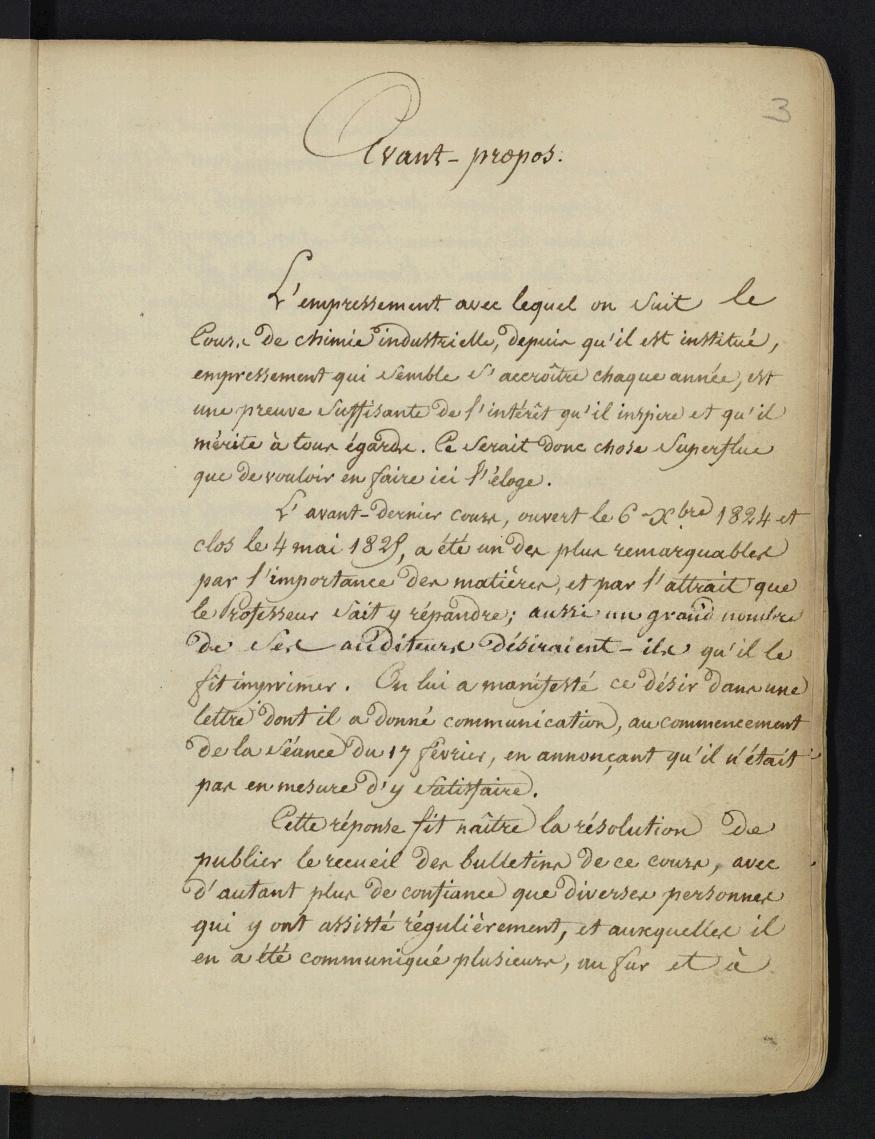 3
Avant-propos.
L'empressement avec lequel on suit le
Cours de chimie industrielle, depuis qu'il est institué,
empressement qui semble s'accroître chaque année, est
une preuve suffisante de l'intérêt qu'il inspire et qu'il
mérite à tous égards. Ce serait donc chose superflue
que de vouloir en faire ici l'éloge.
L'avant-dernier cours, ouvert le 6 Xbre 1824 et
clos le 4 mai 1825, a été un des plus remarquables
par l'importance des matières, et par l'attrait que
le Professeur sait y répandre; aussi un grand nombre
de ses auditeurs désiraient-ils qu'il le
fît imprimer. On lui a manifesté ce désir dans une
lettre dont il a donné communication, au commencement
de la séance du 17 février, en annonçant qu'il n'était
pas en mesure d'y satisfaire.
Cette réponse fit naître la résolution de
publier le recueil des bulletins de ce cours, avec
d'autant plus de confiance que diverses personnes
qui y ont assisté régulièrement, et auxquelles il
en a été communiqué plusieurs, au fur et à